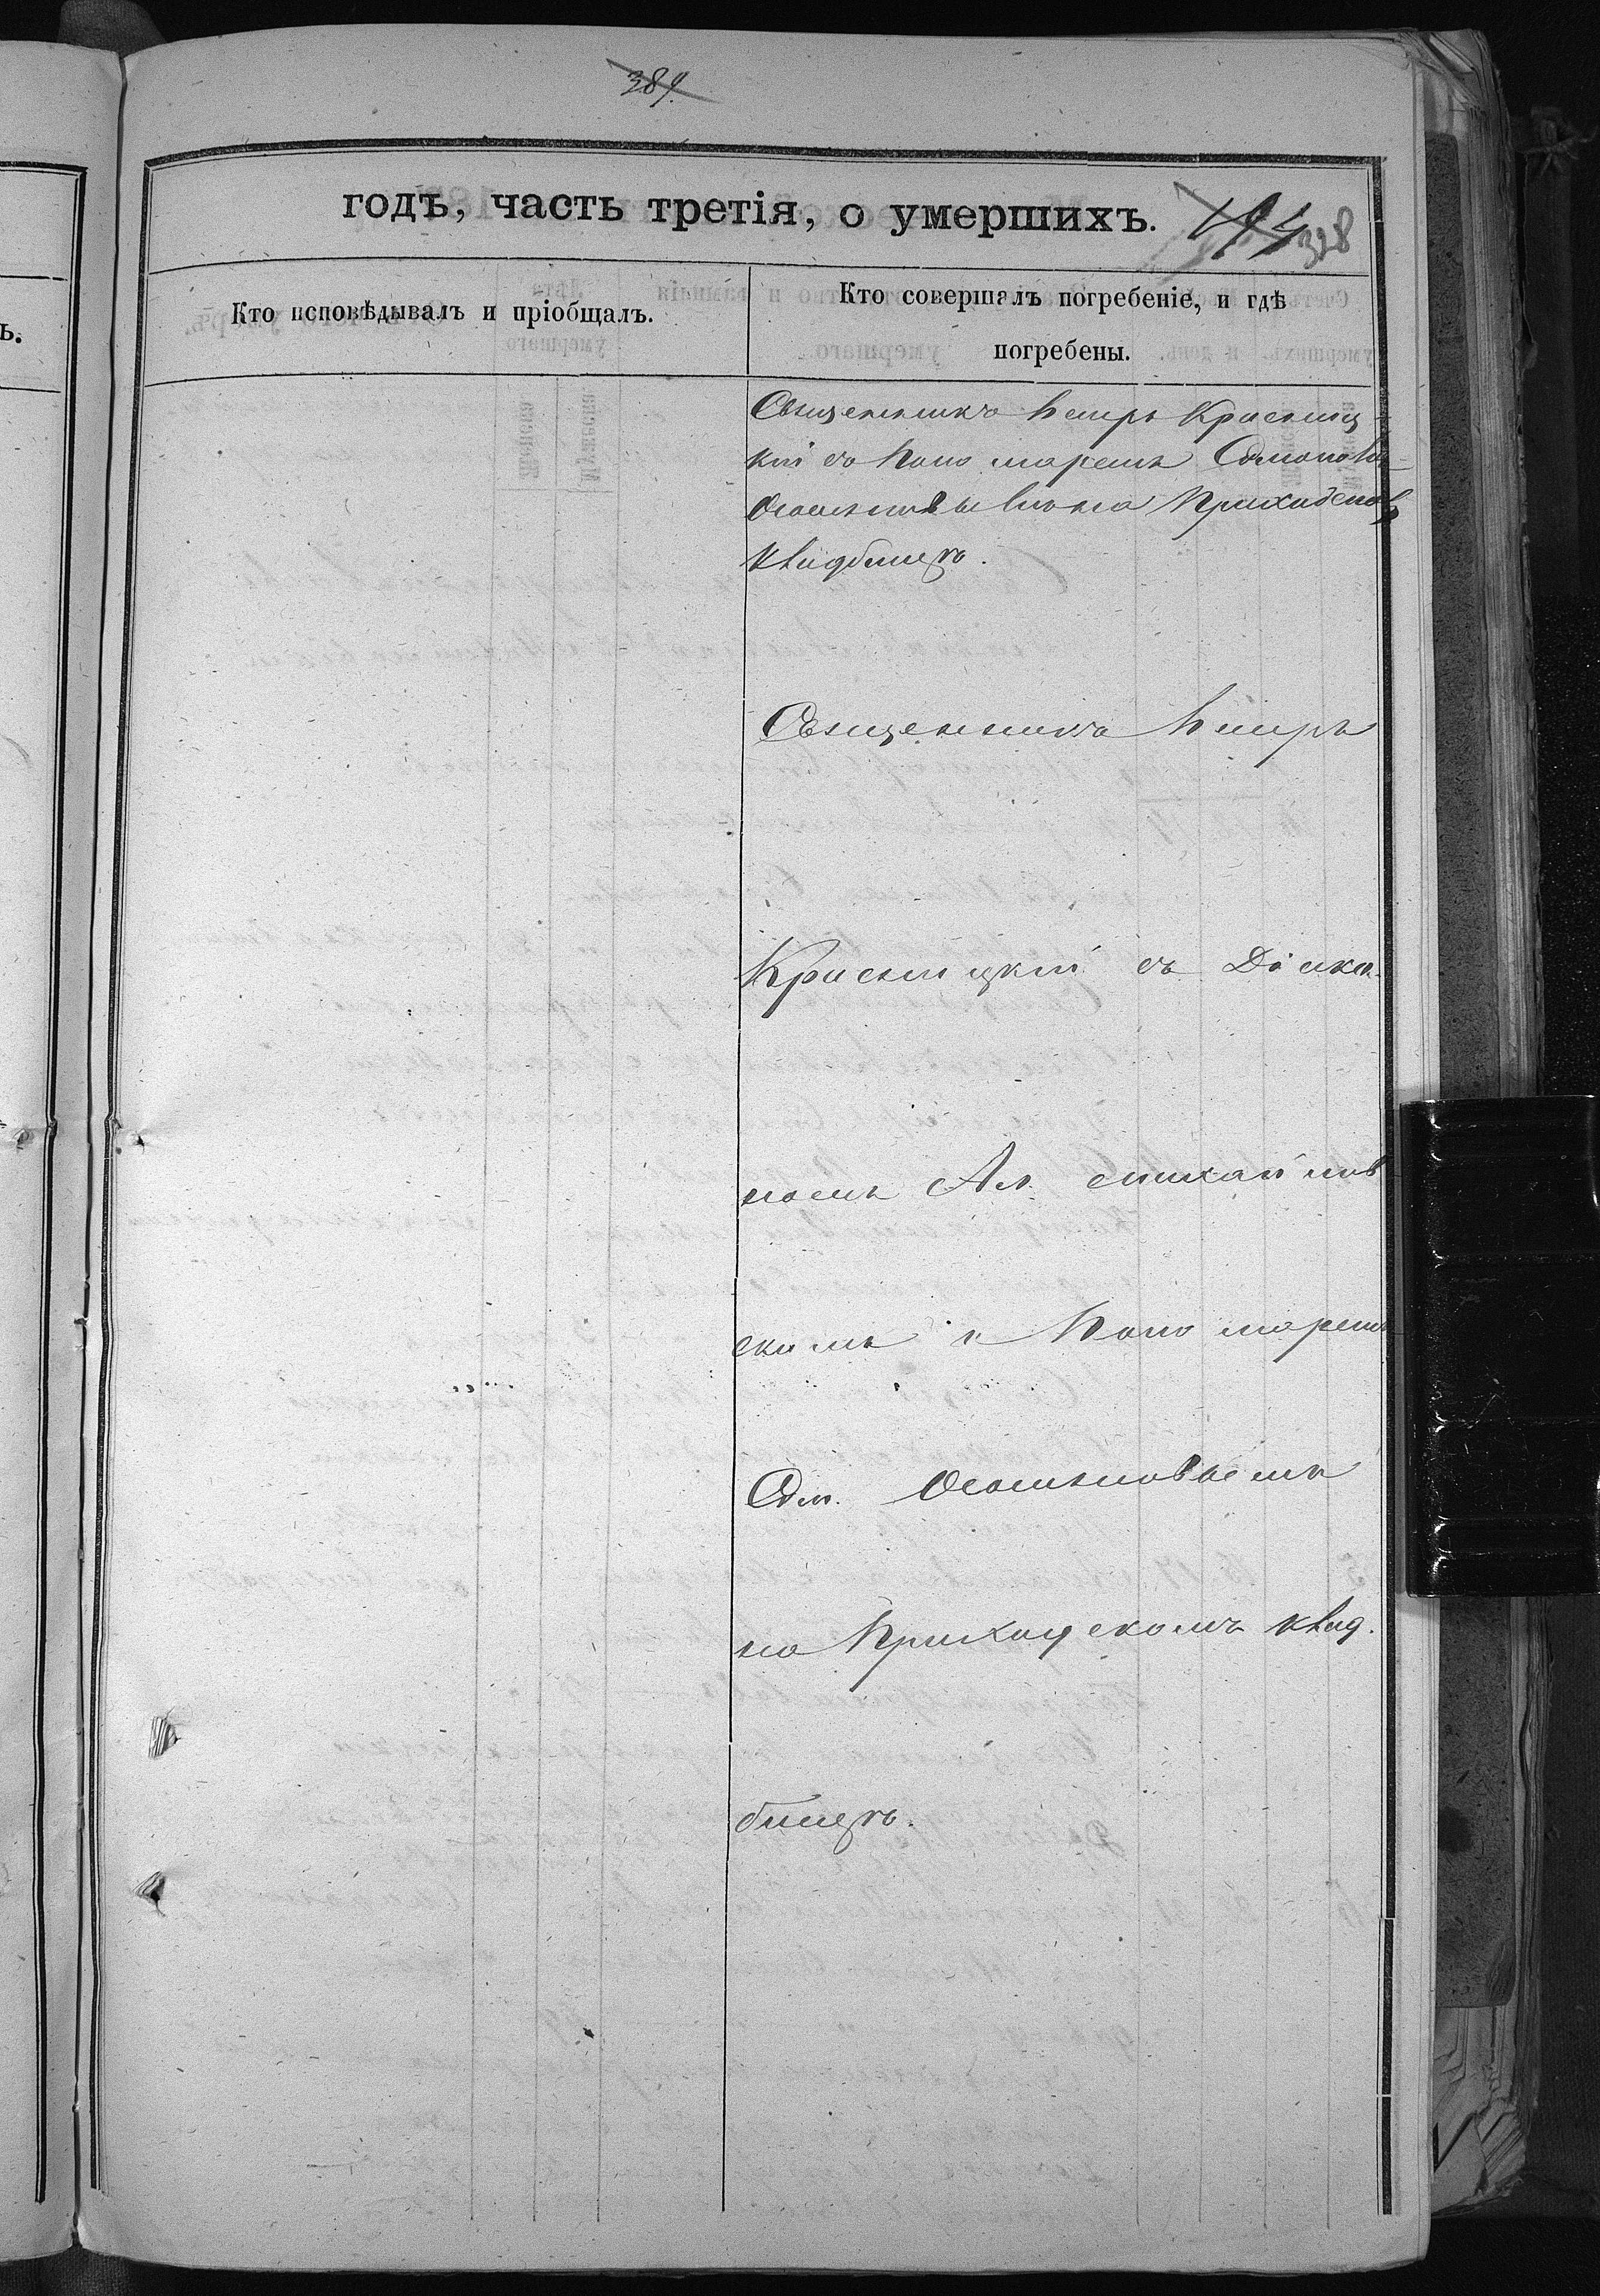 389.
годъ, часть третія, о умершихъ.
328
Кто исповѣдывалъ и пріобщалъ.
Кто совершалъ погребеніе, и гдѣ
погребены.
Священникъ Петръ Красниц
кій съ Поно маремъ
на
кладбищѣ.
Священникъ Петръ
Красницкій съ Діяко
номъ Ал. Михайлов
скимъ и Поно маремъ
на Приходскомъ клад.
бищѣ.